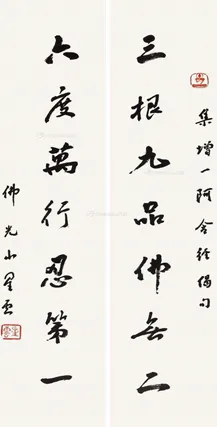 集增一阿含經偈句
三根九品佛無二
六度萬行忍第一
佛光山星雲